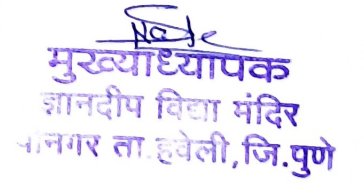 मुख्याध्यापक
ज्ञानदीप विद्या मंदिर
ता.हवेली,जि.पुणे